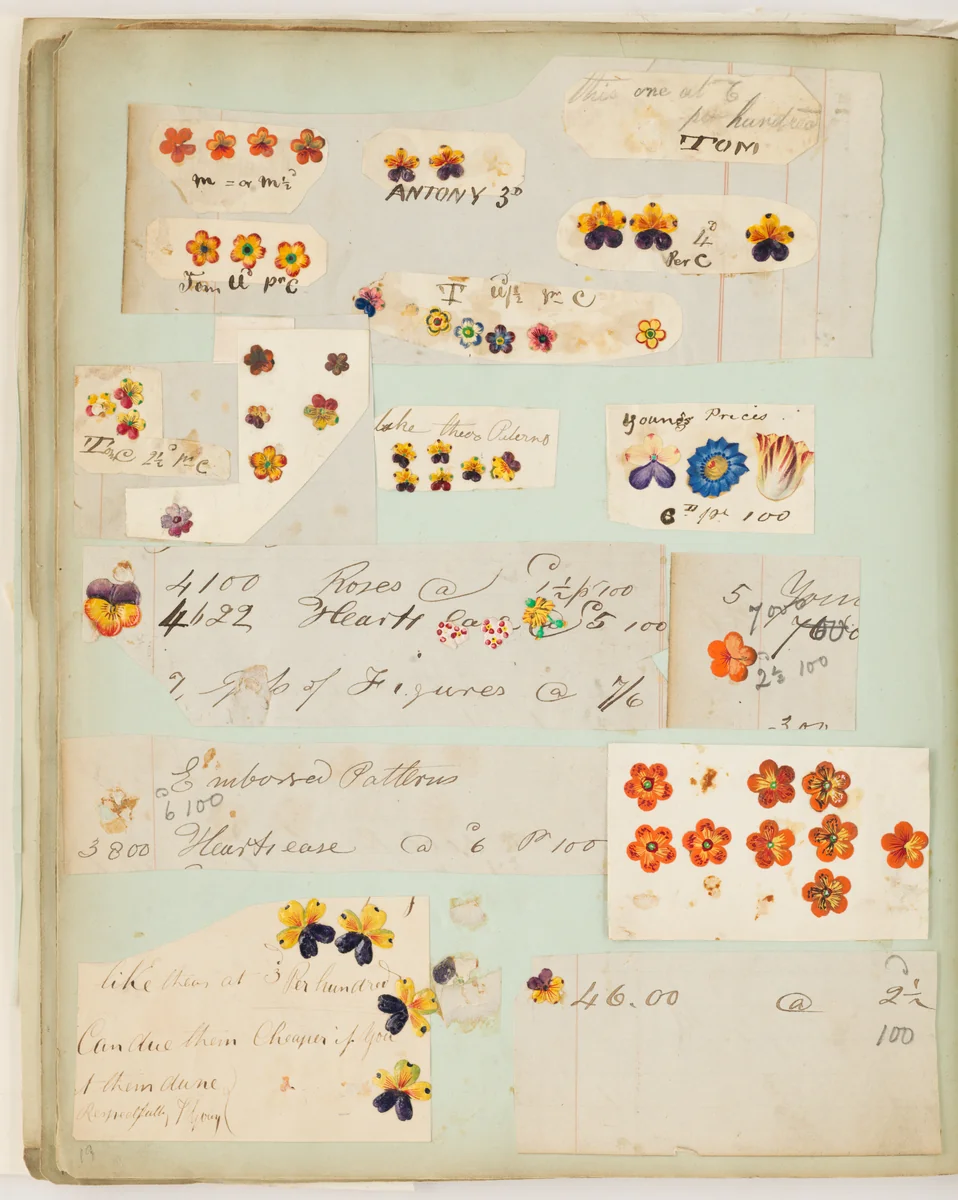 this one at 6
per hundred
TOM
ANTONY 3D
4D
Per C
Tom prC
T pr C
2½ prC
like theos
Young's Prices
6D pr 100
4100 Roses @ 1½ pr 100
4622 Hearts ease @ 5 100
7 of Figures @ 7/6
5 Youn
700
2½ 100
Embossed Patterns
6 100
3800 Heartsease @ 6 Pr 100
like theas at 3 Per hundred
Can due them Cheaper if you
them dune
Respectfully T Young
46.00 @ 2½
100
13